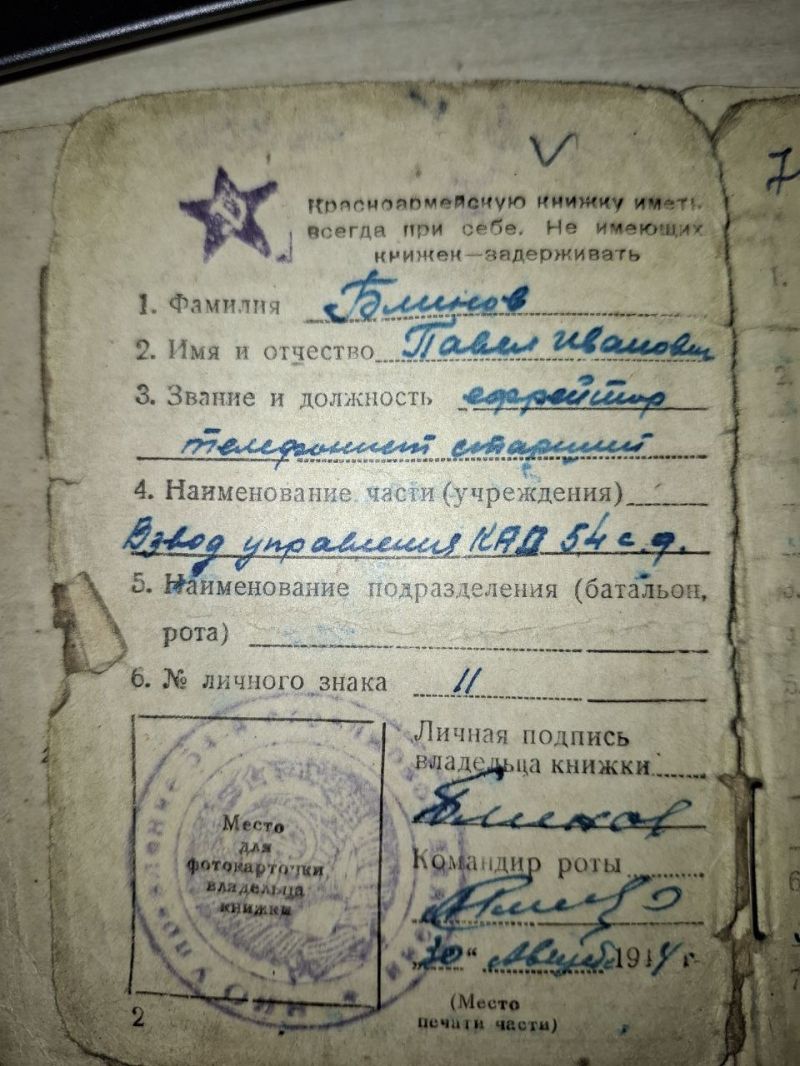 Красноармейскую книжку иметь
всегда при себе. Не имеющих
книжек—задерживать
1. Фамилия Блинов
2. Имя и отчество Павел Иванович
3. Звание и должность ефрейтор
телефонист старший
4. Наименование части (учреждения)
Взвод управления КАД 54 с.д.
5. Наименование подразделения (батальон,
рота)
6. № личного знака 11
Место
для
фотокарточки
владельца
книжки
Личная подпись
владельца книжки
Блинов
Командир роты
„30“ Август 1944 г
(Место
печати части)
2
7